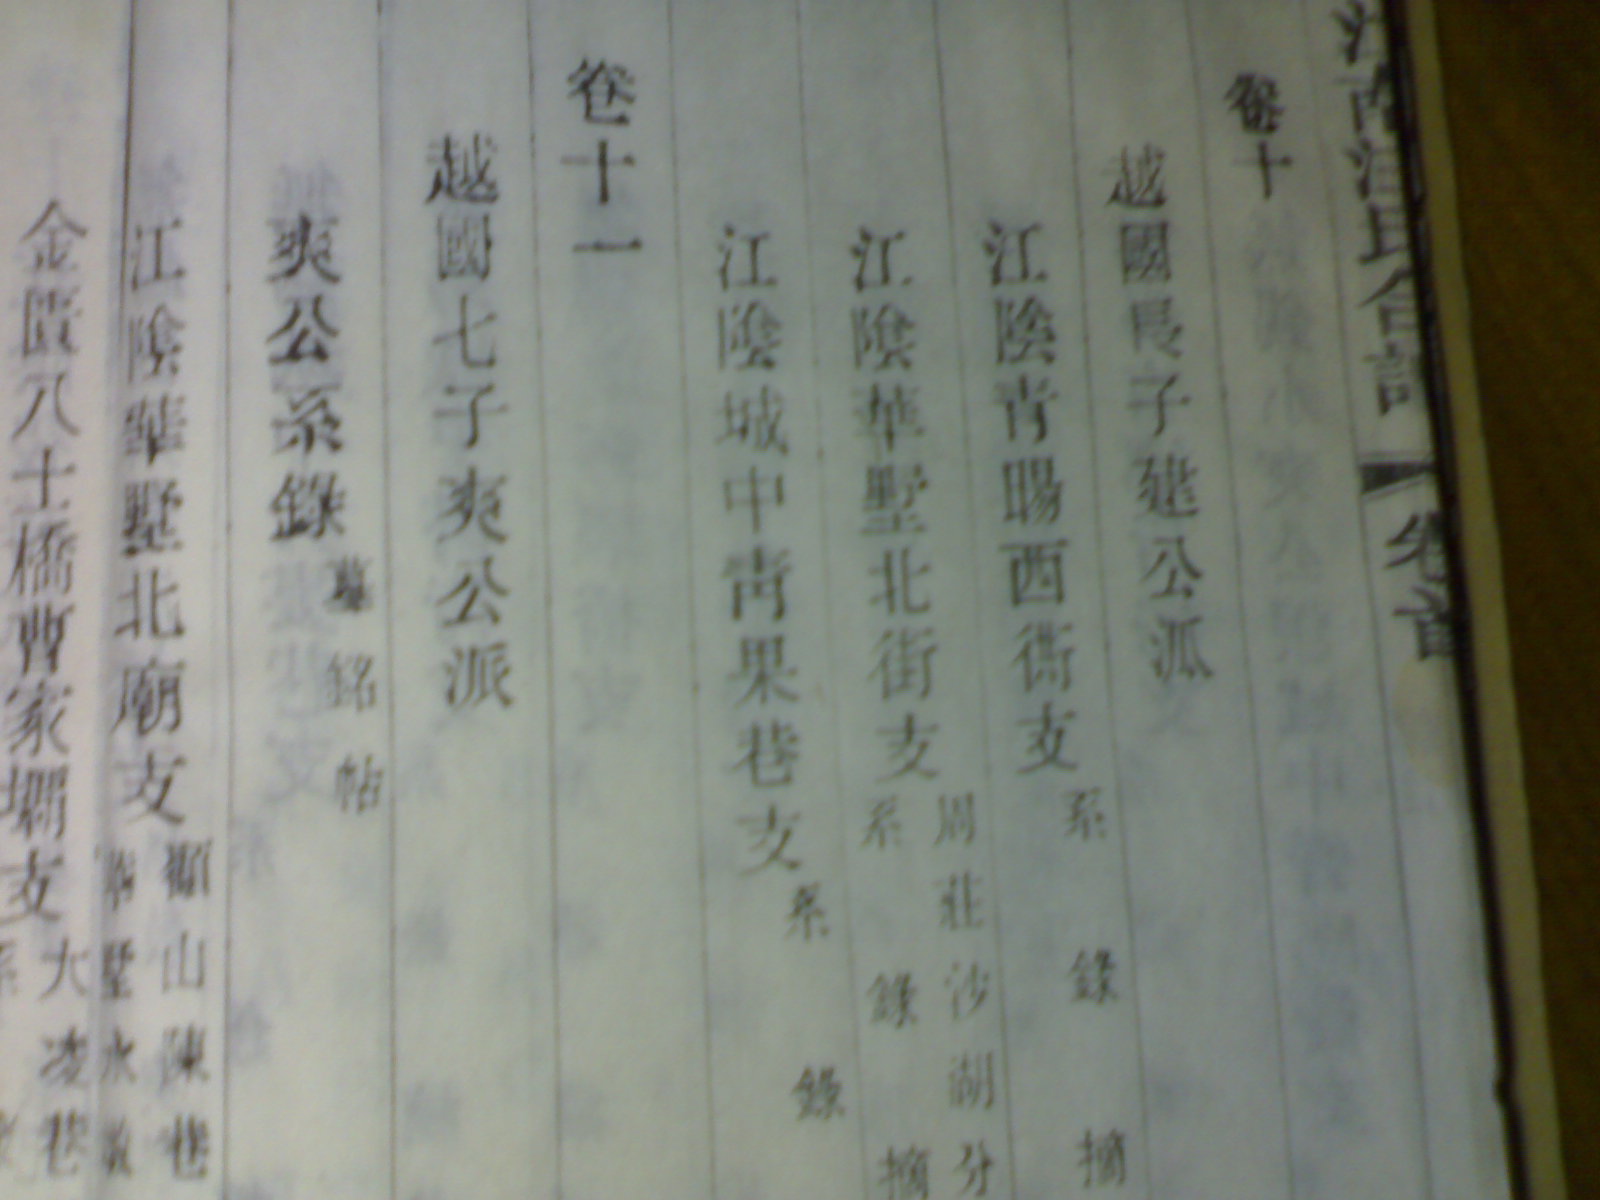 汪氏合譜 卷首
卷十
越國長子建公派
江陰青暘西街支 系錄摘
江陰華墅北街支 周莊沙湖分系錄摘
江陰城中青果巷支 系錄
卷十一
越國七子爽公派
爽公系錄 墓銘帖
江陰華墅北廟支 顧山陳巷 華墅永
金匱八士橋曹家壩支 大凌巷